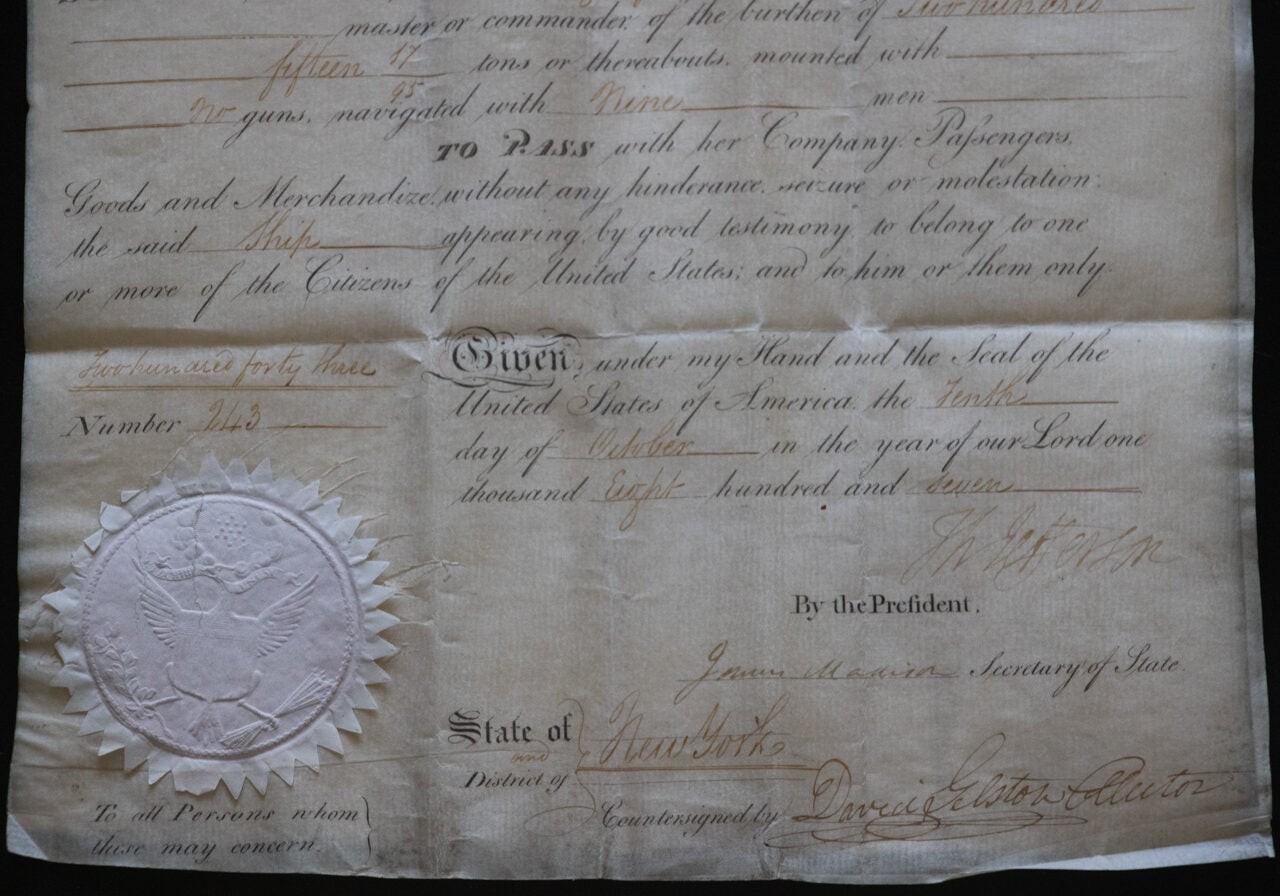 master or commander of the burthen of Two hundred
fifteen 17 tons or thereabouts, mounted with
95
No guns, navigated with Nine men
TO PASS with her Company, Passengers,
Goods and Merchandize, without any hinderance, seizure or molestation;
the said Ship appearing by good testimony to belong to one
or more of the Citizens of the United States; and to him or them only.
Two hundred forty three
Number 243
Given under my Hand and the Seal of the
United States of America, the Tenth
day of October in the year of our Lord one
thousand Eight hundred and Seven
Th Jefferson
By the President.
James Madison Secretary of State.
State of New York
and
District of
Countersigned by David Gelston Collector
To all Persons whom
these may concern.